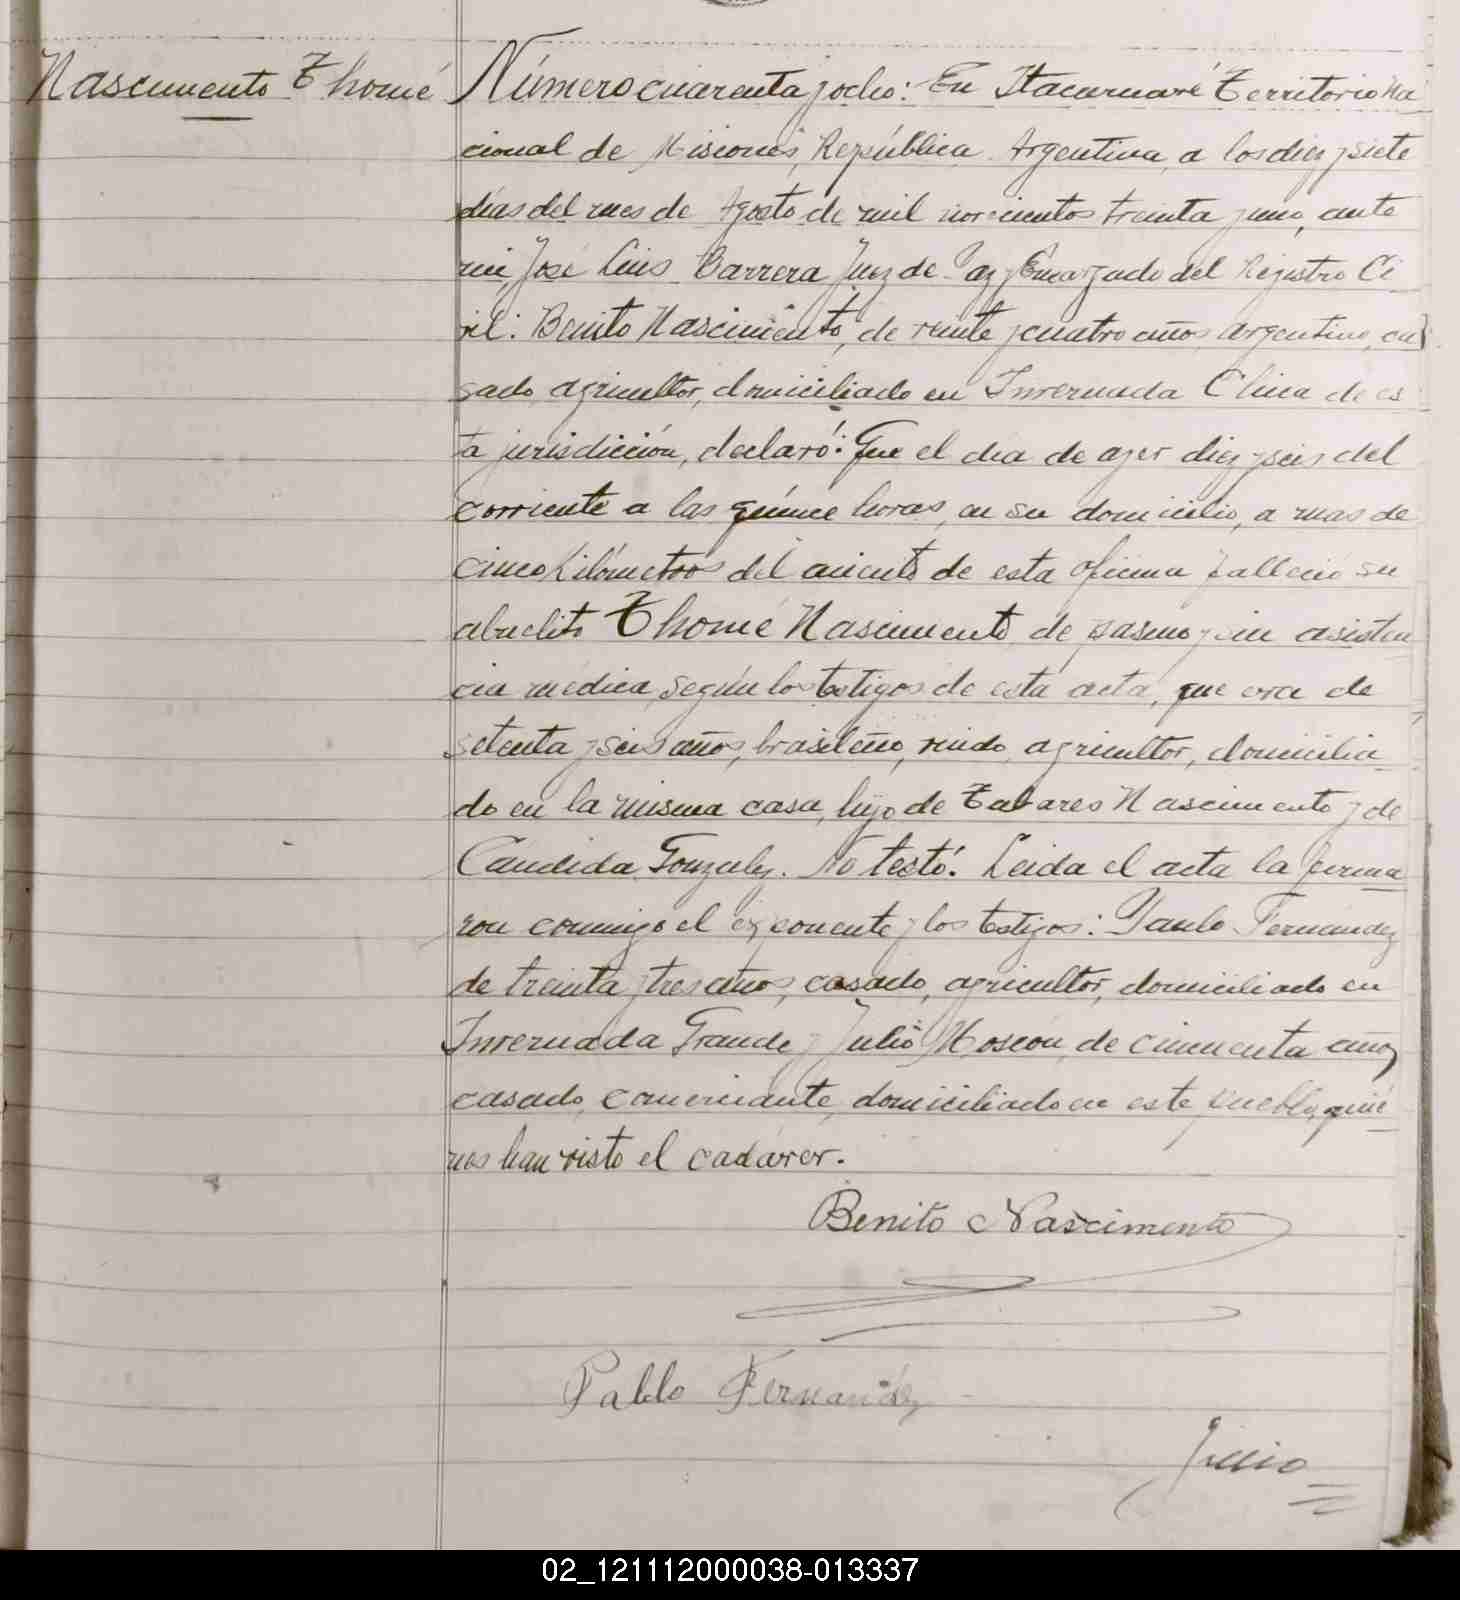 Nascimento Thomé
Número cuarenta y ocho: En Itacaruaré Territorio Na
cional de Misiones, República Argentina, a los diez y siete
días del mes de Agosto de mil novecientos treinta y uno, ante
mi, José Luis Barrera Juez de Paz y Encargado del Registro Ci
vil: Benito Nascimiento, de veinte y cuatro años, argentino, ca
sado, agricultor, domiciliado en Invernada Chica de es
ta jurisdicción, declaró: Que el día de ayer diez y seis del
corriente a las quince horas, en su domicilio, a mas de
cinco kilómetros del asiento de esta oficina falleció su
abuelito Thomé Nascimento, de pasmo y sin asisten
cia médica, según los testigos de esta acta, que era de
setenta y seis años, brasileño, viudo, agricultor, domicilia
do en la misma casa, hijo de Tabares Nascimento y de
Candida Gonzalez. No testó. Leida el acta la firma
ron conmigo el exponente y los testigos: Paulo Fernández
de treinta y tres años, casado, agricultor, domiciliado en
Invernada Grande y Julio Moscón, de cincuenta años,
casado, comerciante, domiciliado en este pueblo, quie
nes han visto el cadáver.
Benito Nascimento
Pablo Fernandez
Julio
02_121112000038-013337